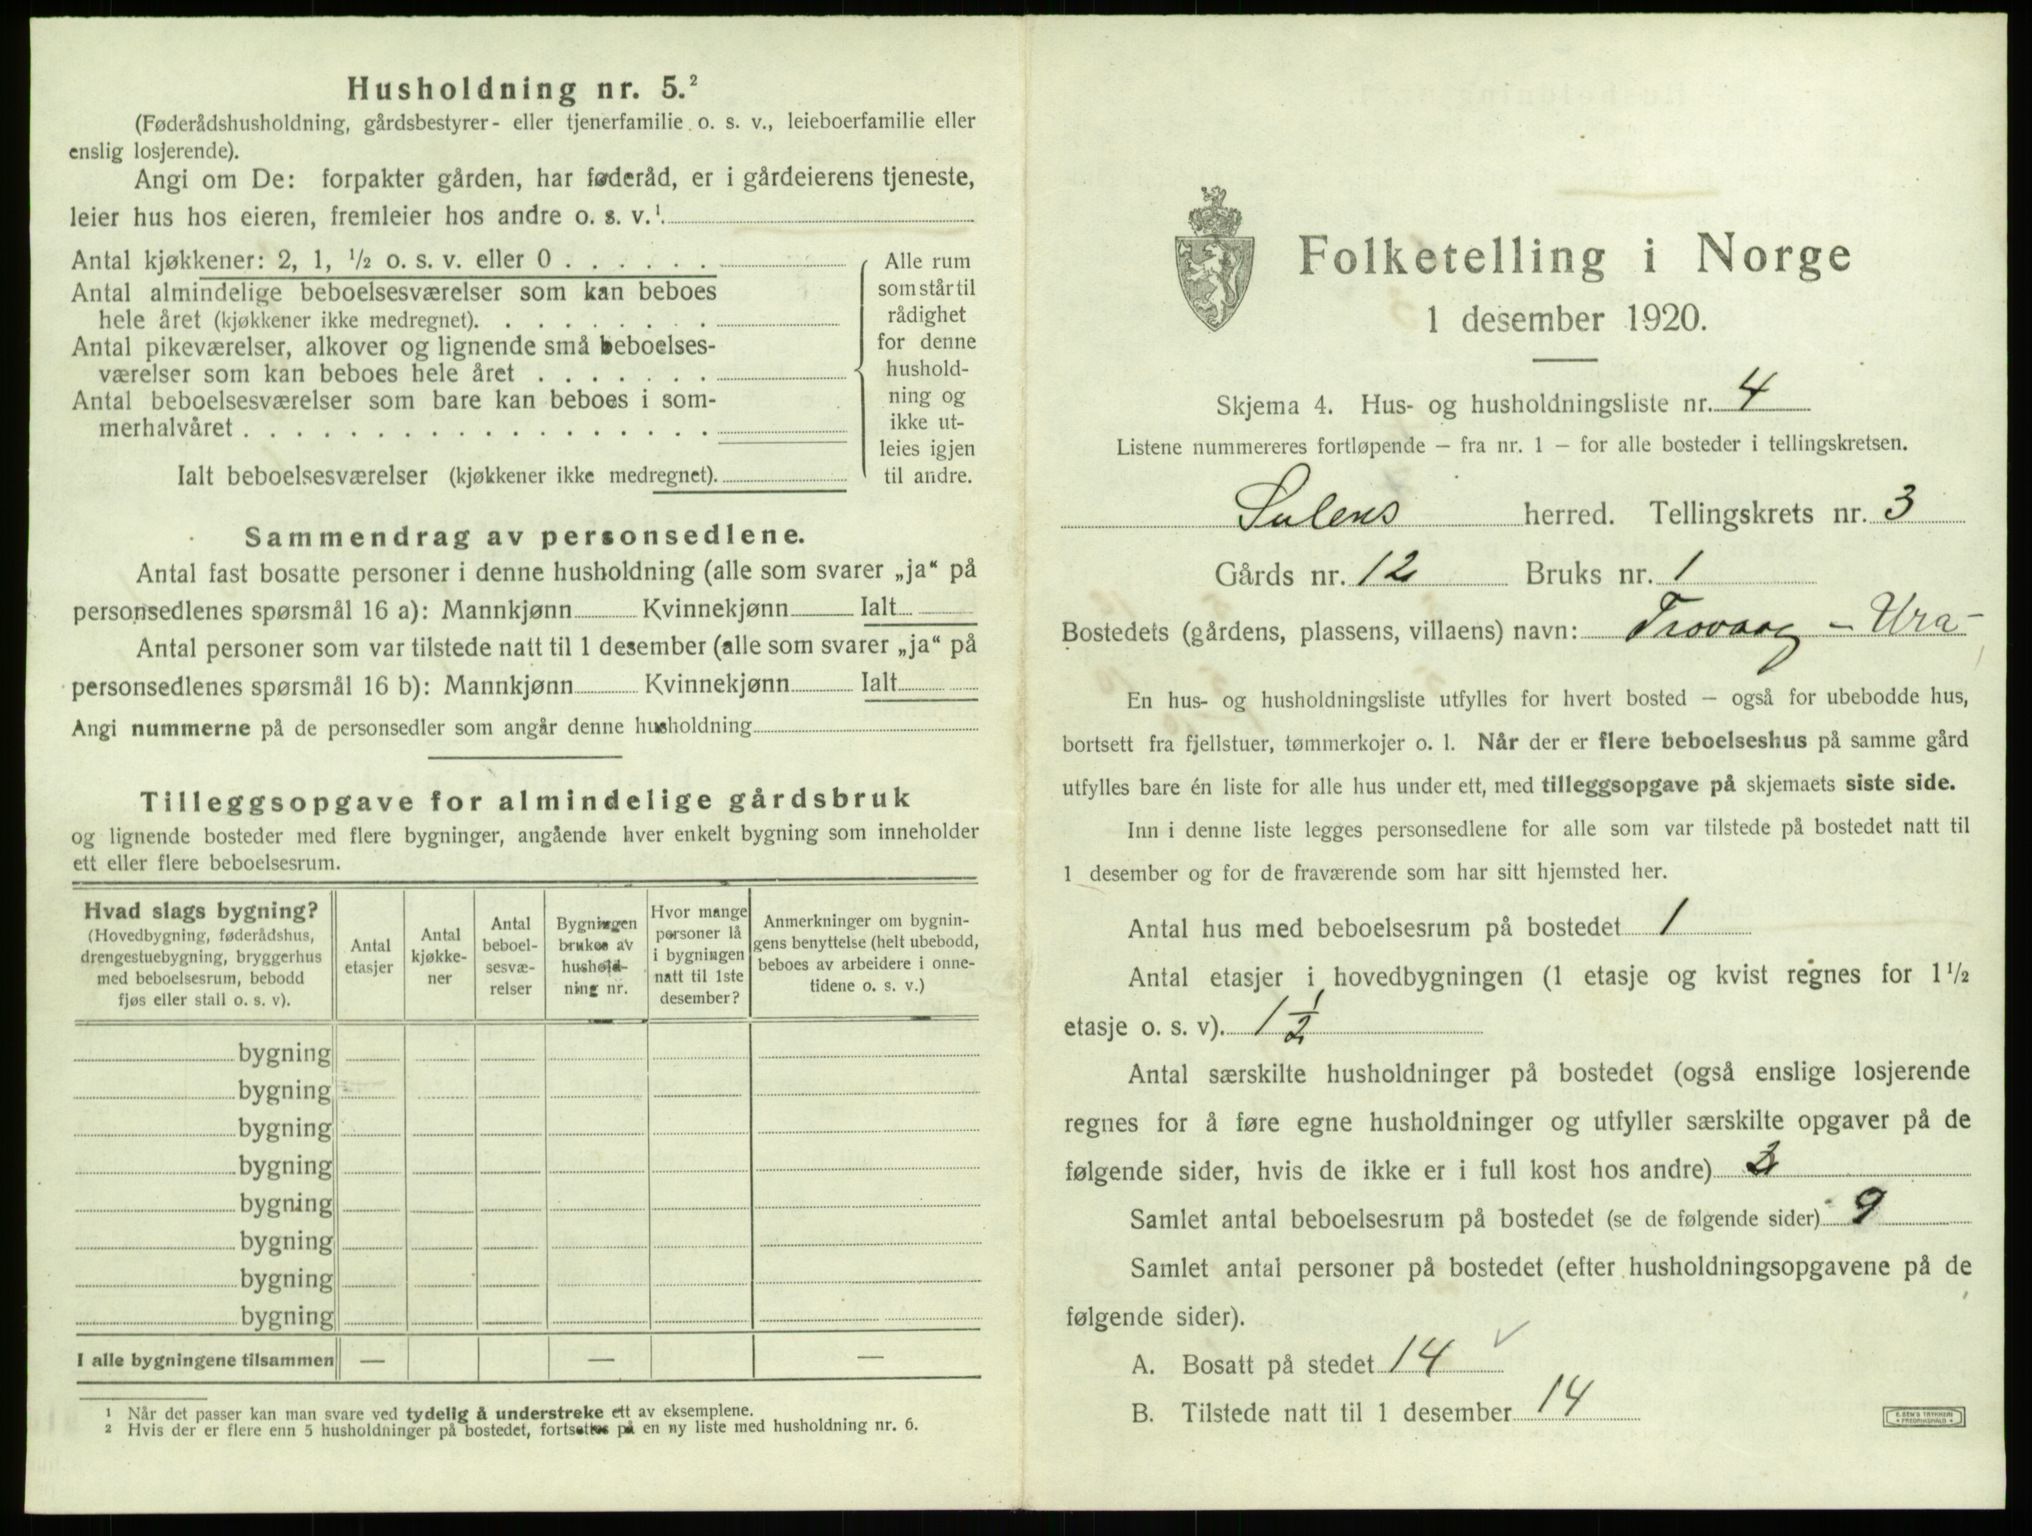 Husholdning nr. 5.²
(Føderådshusholdning, gårdsbestyrer- eller tjenerfamilie o. s. v., leieboerfamilie eller
enslig losjerende).
Angi om De: forpakter gården, har føderåd, er i gårdeierens tjeneste,
leier hus hos eieren, fremleier hos andre o. s. v.¹
Antal kjøkkener: 2, 1, ½ o. s. v. eller 0 . . . . . .
Antal almindelige beboelsesværelser som kan beboes
hele året (kjøkkener ikke medregnet). . . . . . . . .
Antal pikeværelser, alkover og lignende små beboelses-
værelser som kan beboes hele året . . . . . . .
Antal beboelsesværelser som bare kan beboes i som-
merhalvåret . . . . . . . . . . . . . . . . . .
Ialt beboelsesværelser (kjøkkener ikke medregnet).
Alle rum
som står til
rådighet
for denne
hushold-
ning og
ikke ut-
leies igjen
til andre.
Sammendrag av personsedlene.
Antal fast bosatte personer i denne husholdning (alle som svarer „ja“ på
personsedlenes spørsmål 16 a): Mannkjønn Kvinnekjønn Ialt
Antal personer som var tilstede natt til 1 desember (alle som svarer „ja“ på
personsedlenes spørsmål 16 b): Mannkjønn Kvinnekjønn Ialt
Angi nummerne på de personsedler som angår denne husholdning
Tilleggsopgave for almindelige gårdsbruk
og lignende bosteder med flere bygninger, angående hver enkelt bygning som inneholder
ett eller flere beboelsesrum.
Hvad slags bygning?
(Hovedbygning, føderådshus,
drengestuebygning, bryggerhus
med beboelsesrum, bebodd
fjøs eller stall o. s. v).
Antal
etasjer
Antal
kjøkke-
ner
Antal
beboel-
sesvæ-
relser
Bygningen
brukes av
hushold-
ning nr.
Hvor mange
personer lå
i bygningen
natt til 1ste
desember?
Anmerkninger om bygnin-
gens benyttelse (helt ubebodd,
beboes av arbeidere i onne-
tidene o. s. v.)
bygning
bygning
bygning
bygning
bygning
bygning
bygning
bygning
I alle bygningene tilsammen — — —
¹ Når det passer kan man svare ved tydelig å understreke ett av eksemplene.
² Hvis der er flere enn 5 husholdninger på bostedet, fortsettes på en ny liste med husholdning nr. 6.
Folketelling i Norge
1 desember 1920.
Skjema 4. Hus- og husholdningsliste nr. 4
Listene nummereres fortløpende – fra nr. 1 – for alle bosteder i tellingskretsen.
Sulens herred. Tellingskrets nr. 3
Gårds nr. 12 Bruks nr. 1
Bostedets (gårdens, plassens, villaens) navn: Trovaag – Ura –
En hus- og husholdningsliste utfylles for hvert bosted – også for ubebodde hus,
bortsett fra fjellstuer, tømmerkojer o. l. Når der er flere beboelseshus på samme gård
utfylles bare én liste for alle hus under ett, med tilleggsopgave på skjemaets siste side.
Inn i denne liste legges personsedlene for alle som var tilstede på bostedet natt til
1 desember og for de fraværende som har sitt hjemsted her.
Antal hus med beboelsesrum på bostedet 1
Antal etasjer i hovedbygningen (1 etasje og kvist regnes for 1½
etasje o. s. v). 1 ½
Antal særskilte husholdninger på bostedet (også enslige losjerende
regnes for å føre egne husholdninger og utfyller særskilte opgaver på de
følgende sider, hvis de ikke er i full kost hos andre) 2
Samlet antal beboelsesrum på bostedet (se de følgende sider) 9
Samlet antal personer på bostedet (efter husholdningsopgavene på de
følgende sider).
A. Bosatt på stedet 14 ✓
B. Tilstede natt til 1 desember 14